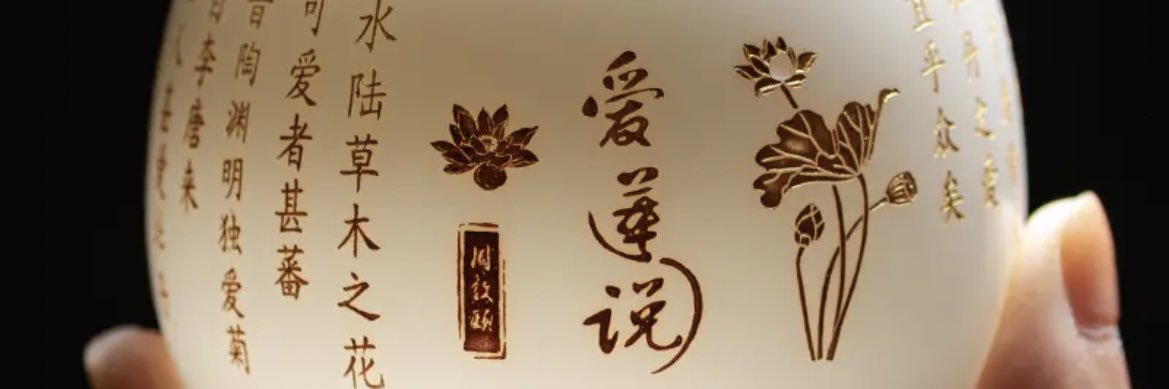 丹之爱
宜乎众矣
爱莲说
周敦颐
水陆草木之花
可爱者甚蕃
晋陶渊明独爱菊
自李唐来